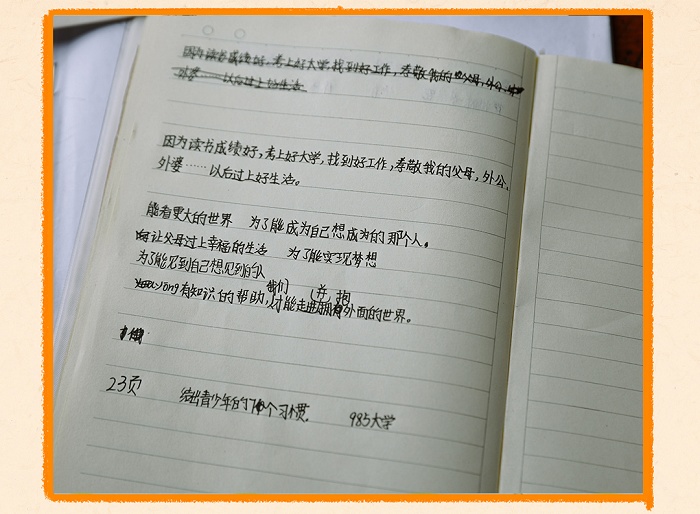 因为读书成绩好，考上好大学，找到好工作，孝敬我的父母，外公、
外婆……以后过上好生活。
因为读书成绩好，考上好大学，找到好工作，孝敬我的父母，外公、
外婆……以后过上好生活。
能看更大的世界 为了能成为自己想成为的那个人。
让父母过上幸福的生活 为了能实现梦想
为了能见到自己想见到的人
有知识的帮助，我们才能走进并拥抱外面的世界。
23页 杰出青少年的7个习惯 985大学